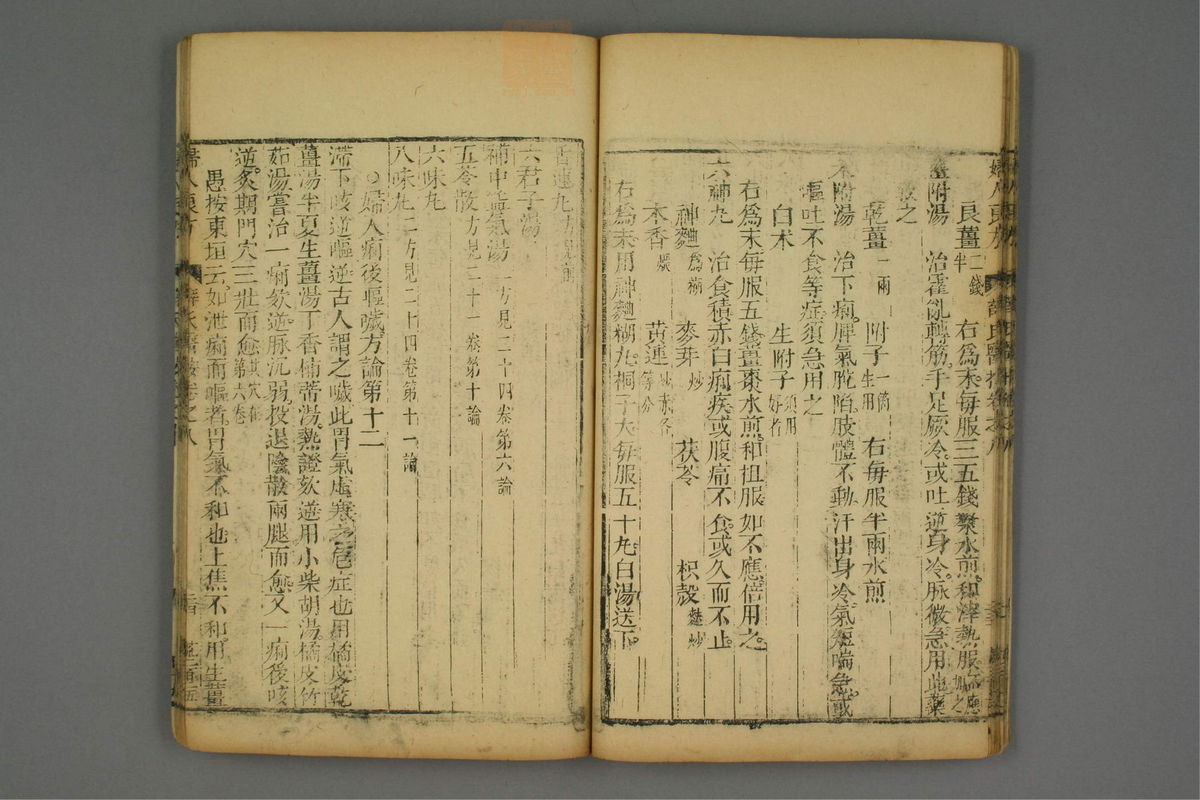 良薑二錢半 右爲末每服三五錢棗水煎和滓熱服
薑附湯 治霍亂轉筋手足厥冷或吐逆身冷脉微急用此藥
救之
乾薑一兩 附子一個生用 右每服半兩水煎
朮附湯 治下痢脾氣脫陷肢體不動汗出身冷氣短喘急或
嘔吐不食等症須急用之
白朮 生附子須用好者
右爲末每服五錢薑棗水煎和柤服如不應倍用之
六神丸 治食積赤白痢疾或腹痛不食或久而不止
神麯爲糊 麥芽炒 茯苓 枳殼麩炒
木香煨 黃連炒赤各等分
右爲末用神麯糊丸桐子大每服五十丸白湯送下
六君子湯
補中益氣湯二方見二十四卷第六論
五苓散方見二十一卷第十論
六味丸
八味丸二方見二十四卷第十一論
○婦人痢後嘔噦方論第十二
滯下咳逆嘔逆古人謂之噦此胃氣虛寒之危症也用橘皮乾
薑湯半夏生薑湯丁香柿蒂湯熱證欬逆用小柴胡湯橘皮竹
茹湯嘗治一痢欬逆脉沉弱投退陰散兩腿而愈又一痢後咳
逆灸期門穴三壯而愈其穴在第六卷
愚按東垣云如泄痢而嘔者胃氣不和也上焦不和用生薑